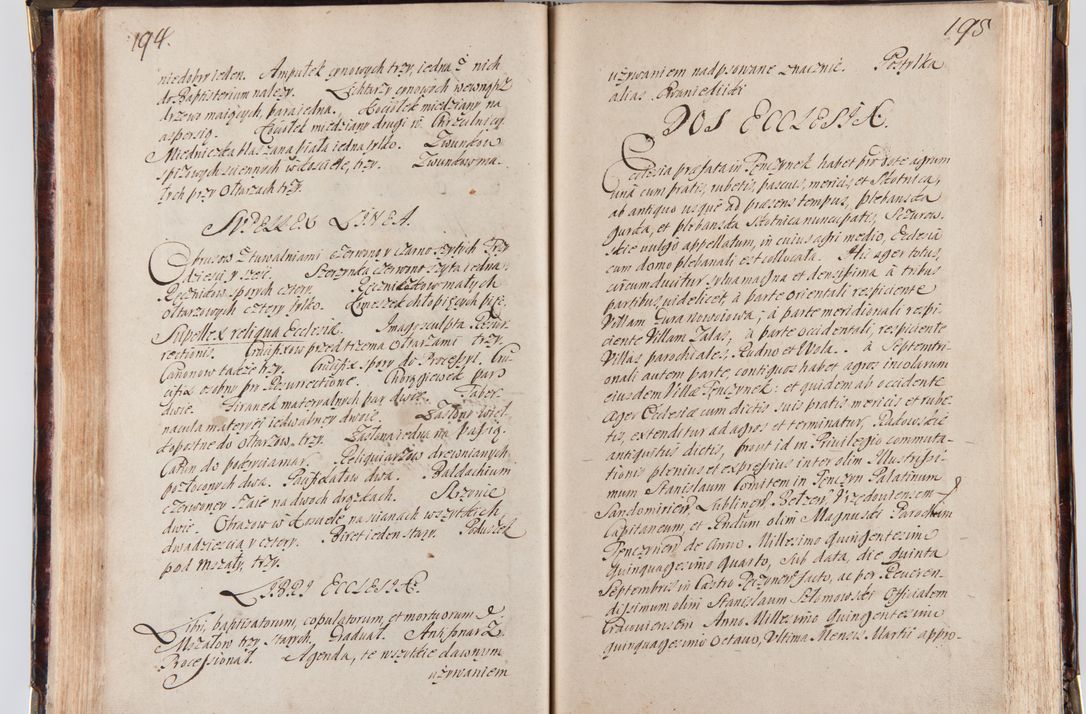 194.
niedobry ieden. Ampułek cynowych trzy, iedna z nich
do Baptisterium należy. Lichtarzy cynowych wewnątrz
drzewo maiących, para iedna. Kociołek miedziany na
aspersią. Kociełek miedziany drugi w Chrzcielnicy.
Miedniczka blaszana biała iedna tylko. Dzwonków
spiżowych sciennych w kościele, trzy. Dzwonków ma-
łych przy Ołtarzach trzy.
SUPELLEX LINEA.
Obrusow z tuwalniami czerwono y czarno szytych Trzy
dziesci y sześć. czerwono szyta iedna,
Ręcznikow sporych cztery. Ręczniczkow małych
ołtarzowych cztery tylko. Komeszek chłopięcych pięć.
Supellex reliqua Ecclesiæ. Imago sculpta Resur-
rectionis. Crucifixow przed trzema Ołtarzami trzy.
Canonow także trzy. Crucifix spory do Processyi. Cru-
cifix osobny pro Resurrectione. Chorągiewek para
dwie. Firanek materyalnych par dwie. Taber-
nacula materyey iedwabney dwoie. Zasłony wiel-
kopostne do ołtarzow, trzy. Zasłona iedna na Passią.
Całun do pokrycia mar. Reliquiarzow drewnianych
pozłoconych dwa. Pacifikałow dwa. Baldachium
czerwoney Kitaie na dwoch drążkach. Skrzynie
dwie. Obrazow w Kościele na scianach wszytkich,
dwadziescia y cztery. Biret ieden stary. Poduszek
pod Mszały, trzy.
LIBRI ECCLESIÆ.
Libri, baptisatorum, copulatorum, et mortuorum
Mszałow trzy starych. Gradual. Antiphonarz.
Processional. Agenda, te wszytkie dawnym
używaniem
195
używaniem nadpsowane znacznie. Petryłka
alias
DOS ECCLESIÆ.
Ecclesia præfata in Tenczynek habet pro dote agrum
unà cum pratis, rubetis, pascuis, mericis, et Skotnica,
ab antiquo usque ad præsens tempus, plebanska
gurka, et plebanska Skotnica nuncupatis,
skie vulgo appellatum, in cuius agri medio, Ecclesia
cum domo plebanali est collocata. Alij ager totus,
circumducitur, sylva magna et densissima à tribus
partibus, videlicet, à parte orientali respiciente
Villam Cura nowoiowa; à parte meridionali respi-
ciente Villam Zalas, à parte occidentali, respiciente
Villas parochiales, Rudno et Wola.. à Septemtri-
onali autem parte, contiguos habet agros incolarum
eiusdem Villæ Tenczynek: et quidem ab occidente
ager Ecclesiæ cum dictis suis pratis mericis et rube-
tis, extenditur ad agros et terminatur, Radowskie
antiquitus dictis, prout id in Privilegio commuta-
tionis plenius et expressius inter olim Illustrissi-
mum Stanislaum Comitem in Tenczyn Palatinum
Sandomirien Lublinen Belzen Hrzedouiensem
Capitaneum, et Pndum olim Magnuski Parochum
Tencznen de Anno Millesimo quingentesimo
Quinquagesimo Quarto, Sub data, die quinta
Septembris in Castro Tenczynen facto, ac per Reveren-
dissimum olim Stanislaum Słomowski Officialem
Cracoviensem Anno Millesimo Quingentesimo
quinquagesimo Octavo, Ultima Mensis Martii appro-